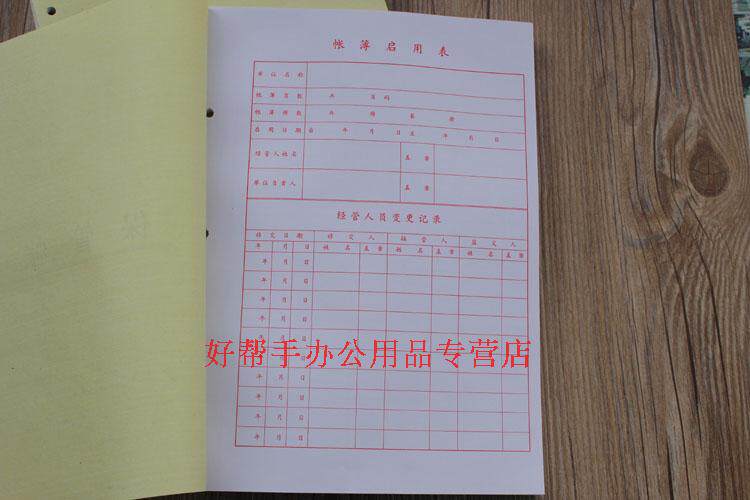 帐簿启用表
单位名称
帐簿页数 共 页码
帐簿册数 共 册 第 册
启用日期 自 年 月 日至 年 月 日
经管人姓名 盖章
单位负责人 盖章
经管人员变更记录
移交日期 移交人 接管人 监交人
年 月 日 姓名 盖章 姓名 盖章 姓名 盖章
年 月 日
年 月 日
年 月 日
年 月 日
年 月 日
好帮手办公用品专营店
年 月 日
年 月 日
年 月 日
年 月 日